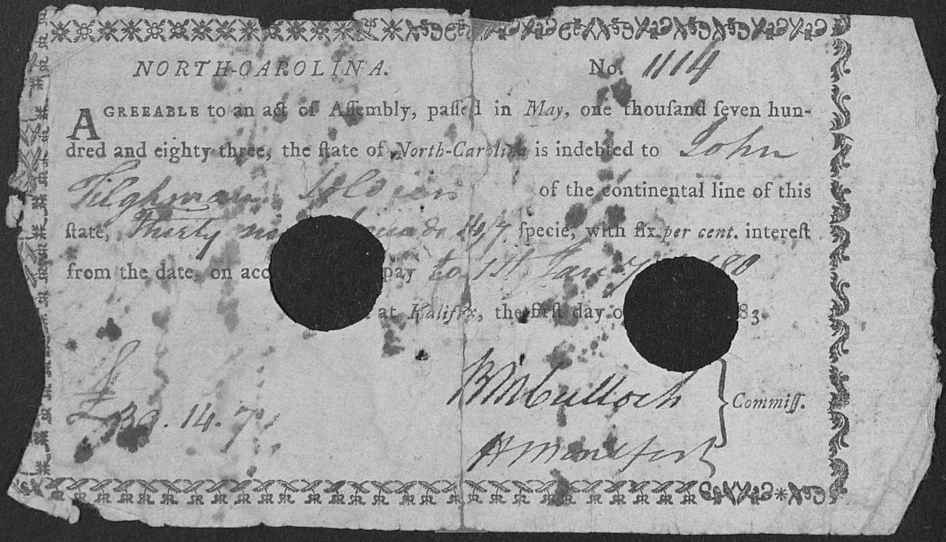 NORTH-CAROLINA. No. 1114
AGREEABLE to an act of Aſſembly, paſſed in May, one thouſand ſeven hun-
dred and eighty three, the ſtate of North-Carolina is indebted to John
Tilghman Soldier of the continental line of this
ſtate, Thirty 14/7 ſpecie, with ſix per cent. intereſt
from the date, on pay to 1st Jany
at Halifax, the firſt day 83
£ 14.7
BMcCulloch
Commiſſ.
H Montfort